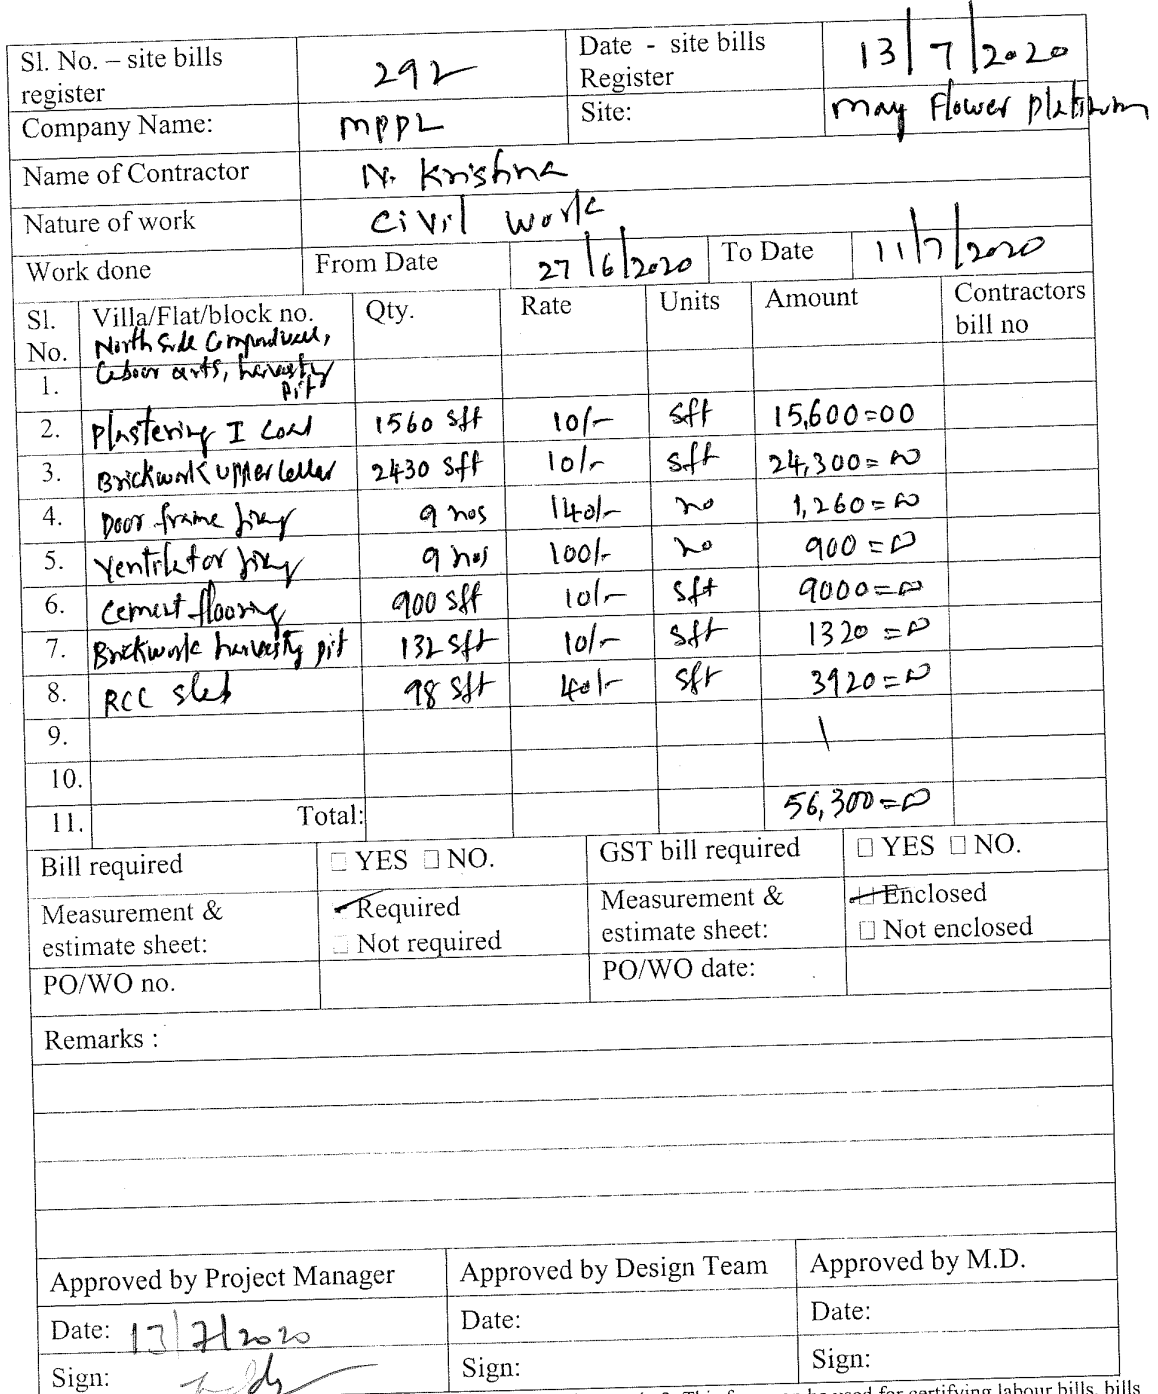 Sl. No. – site bills register 292 Date - site bills Register 13/7/2020
Company Name: MPPL Site: May Flower Platinum
Name of Contractor N. Krishna
Nature of work Civil work
Work done From Date 27/6/2020 To Date 11/7/2020
Sl. No. Villa/Flat/block no. Qty. Rate Units Amount Contractors bill no
North Side Compound wall,
1. Labour qrts, harvesty pit
2. Plastering I Coat 1560 sft 10/- sft 15,600=00
3. Brickwork upper cellar 2430 sft 10/- sft 24,300=00
4. Door frame fixing 9 nos 140/- no 1,260=00
5. Ventilator fixing 9 nos 100/- no 900=00
6. Cement flooring 900 sft 10/- sft 9000=00
7. Brickwork harvesty pit 132 sft 10/- sft 1320=00
8. RCC slab 98 sft 40/- sft 3920=00
9.
10.
11. Total: 56,300=00
Bill required □ YES □ NO. GST bill required □ YES □ NO.
Measurement & estimate sheet: ✓ Required □ Not required Measurement & estimate sheet: Enclosed □ Not enclosed
PO/WO no. PO/WO date:
Remarks :
Approved by Project Manager Approved by Design Team Approved by M.D.
Date: 13/7/2020 Date: Date:
Sign: Sign: Sign: